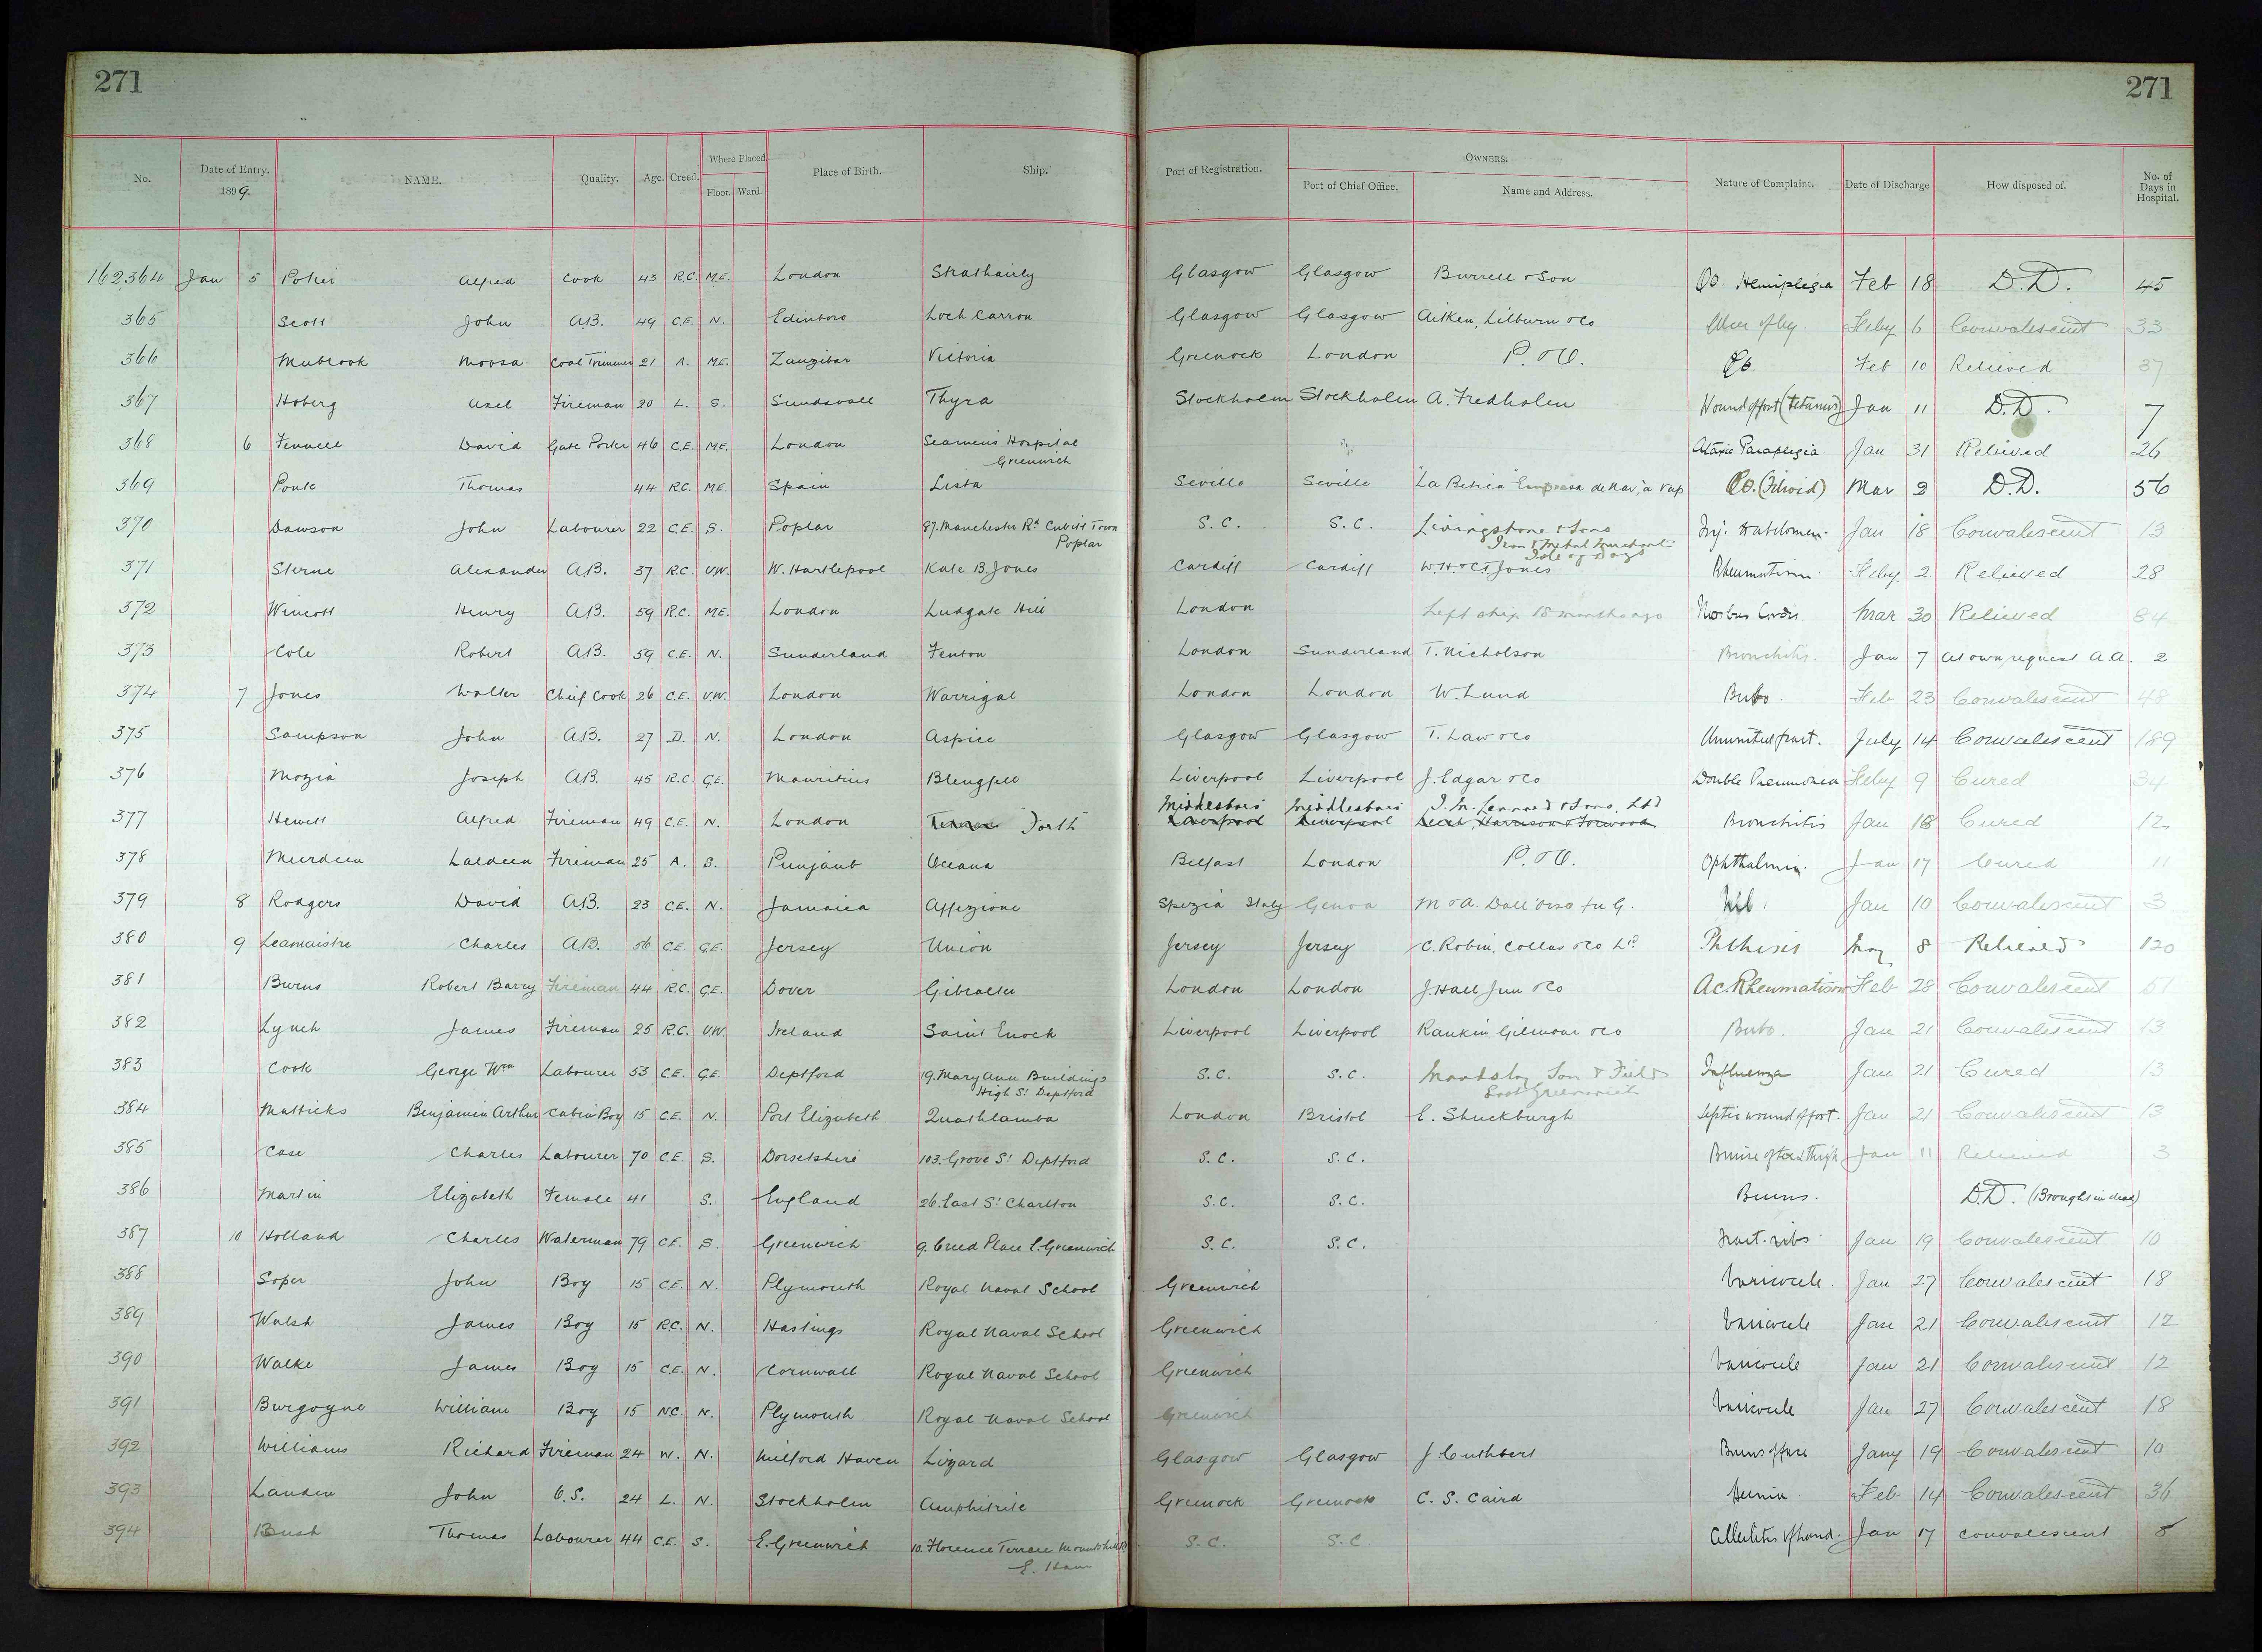 271
271
No. Date of Entry. 1899. NAME. Quality. Age. Creed. Where Placed. Floor. Ward. Place of Birth. Ship. Port of Registration. OWNERS. Port of Chief Office. Name and Address. Nature of Complaint. Date of Discharge How disposed of. No. of Days in Hospital.
162,364 Jan 5 Alfred Cook 43 R.C. M.E. London Glasgow Glasgow Burrell & Son Hemiplegia Feb 18 D.D. 45
365 Scott John A.B. 49 C.E. N. Edinboro Loch Carron Glasgow Glasgow Aitken, Lilburn & Co Ulcer of leg Feby 6 Convalescent 33
366 Mubrook Moosa Coal Trimmer 21 A. M.E. Zanzibar Victoria Greenock London P. & O. Feb 10 Relieved 37
367 Hoberg Axel Fireman 20 L. S. Sundsvall Thyra Stockholm Stockholm A. Fredholm Wound of foot (tetanus) Jan 11 D.D. 7
368 6 Fennell David Gate Porter 46 C.E. M.E. London Seamen's Hospital Ataxic Paraplegia Jan 31 Relieved 26
Greenwich
369 Ponte Thomas 44 R.C. M.E. Spain Lista Seville Seville "La Betica" Empresa de Nav. a Vap Mar 2 D.D. 56
370 Dawson John Labourer 22 C.E. S. Poplar 87. Manchester Rd Cubitt Town S.C. S.C. Livingstone & Sons Inj. to abdomen. Jan 18 Convalescent 13
Poplar Iron & Metal Merchant
Isle of Dogs
371 Sterne Alexander A.B. 37 R.C. V.W. W. Hartlepool Kate B. Jones Cardiff Cardiff W.H. & C.T. Jones Rheumatism Feby 2 Relieved 28
372 Wincott Henry A.B. 59 R.C. M.E. London Ludgate Hill London Left ship 18 months ago Morbus Cordis Mar 30 Relieved 84
373 Cole Robert A.B. 59 C.E. N. Sunderland Fenton London Sunderland T. Nicholson Bronchitis. Jan 7 At own request A.A. 2
374 7 Jones Walter Chief Cook 26 C.E. V.W. London Warrigal London London W. Lund Bubo. Feb 23 Convalescent 48
375 Sampson John A.B. 27 D. N. London Aspice Glasgow Glasgow T. Law & Co Ununited fract. July 14 Convalescent 189
376 Mozia Joseph A.B. 45 R.C. G.E. Mauritius Blengfell Liverpool Liverpool J. Edgar & Co Double Pneumonia Feby 9 Cured 34
Middlesbro' Middlesbro' J. M. Lennard & Sons, Ltd
377 Hewett Alfred Fireman 49 C.E. N. London Forth Liverpool Liverpool Leech, Harrison & Forwood Bronchitis Jan 18 Cured 12
378 Meerdeen Laldeen Fireman 25 A. S. Punjaub Oceana Belfast London P. & O. Ophthalmia. Jan 17 Cured 11
379 8 Rodgers David A.B. 23 C.E. N. Jamaica Affezione Spezia Italy Genoa M & A. Dall'Orso fu G. Jan 10 Convalescent 3
380 9 Leamaistre Charles A.B. 56 C.E. G.E. Jersey Union Jersey Jersey C. Robin, Collas & Co Ld Phthisis May 8 Relieved 120
381 Burns Robert Barry Fireman 44 R.C. G.E. Dover Gibraltar London London J. Hall Jun & Co Ac. Rheumatism Feb 28 Convalescent 51
382 Lynch James Fireman 25 R.C. V.W. Ireland Saint Enoch Liverpool Liverpool Rankin Gilmour & Co Bubo. Jan 21 Convalescent 13
383 Cook George Wm Labourer 53 C.E. G.E. Deptford 19. Mary Ann Buildings S.C. S.C. Maudslay Son & Field Influenza Jan 21 Cured 13
High St Deptford East Greenwich
384 Matticks Benjamin Arthur Cabin Boy 15 C.E. N. Port Elizabeth Quathlamba London Bristol E. Shuckburgh Septic wound of foot. Jan 21 Convalescent 13
385 Case Charles Labourer 70 C.E. S. Dorsetshire 103. Grove St Deptford S.C. S.C. Bruise of thigh Jan 11 Relieved 3
386 Martin Elizabeth Female 41 S. England 26. East St Charlton S.C. S.C. Burns. D.D. (Brought in dead)
387 10 Holland Charles Waterman 79 C.E. S. Greenwich 9. Creed Place E. Greenwich S.C. S.C. Fract. ribs Jan 19 Convalescent 10
388 Soper John Boy 15 C.E. N. Plymouth Royal Naval School Greenwich Varicocele. Jan 27 Convalescent 18
389 Walsh James Boy 15 R.C. N. Hastings Royal Naval School Greenwich Varicocele Jan 21 Convalescent 12
390 Walke James Boy 15 C.E. N. Cornwall Royal Naval School Greenwich Varicocele Jan 21 Convalescent 12
391 Burgoyne William Boy 15 N.C. N. Plymouth Royal Naval School Greenwich Varicocele Jan 27 Convalescent 18
392 Williams Richard Fireman 24 W. N. Milford Haven Lizard Glasgow Glasgow J. Cuthbert Burns of face Jany 19 Convalescent 10
393 Landen John O.S. 24 L. N. Stockholm Amphitrite Greenock Greenock C. S. Caird Hernia. Feb 14 Convalescent 36
394 Bush Thomas Labourer 44 C.E. S. E. Greenwich 10. Florence Terrace S.C. S.C. Cellulitis of hand. Jan 17 Convalescent 8
E. Ham